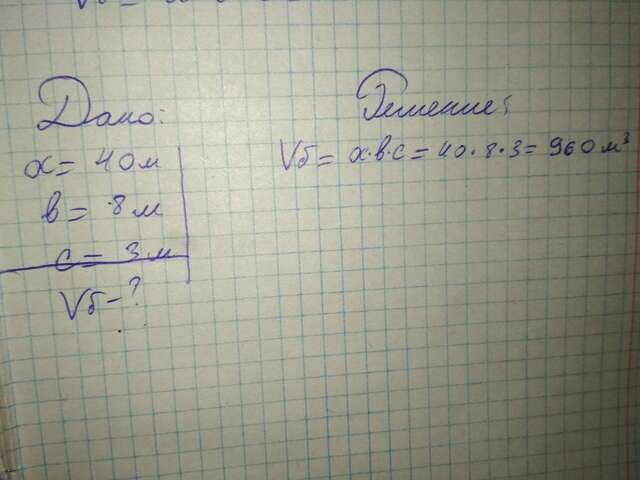 Дано:
a = 40 м
в = 8 м
c = 3 м
Vб - ?
Решение:
Vб = a·в·c = 40·8·3 = 960 м³